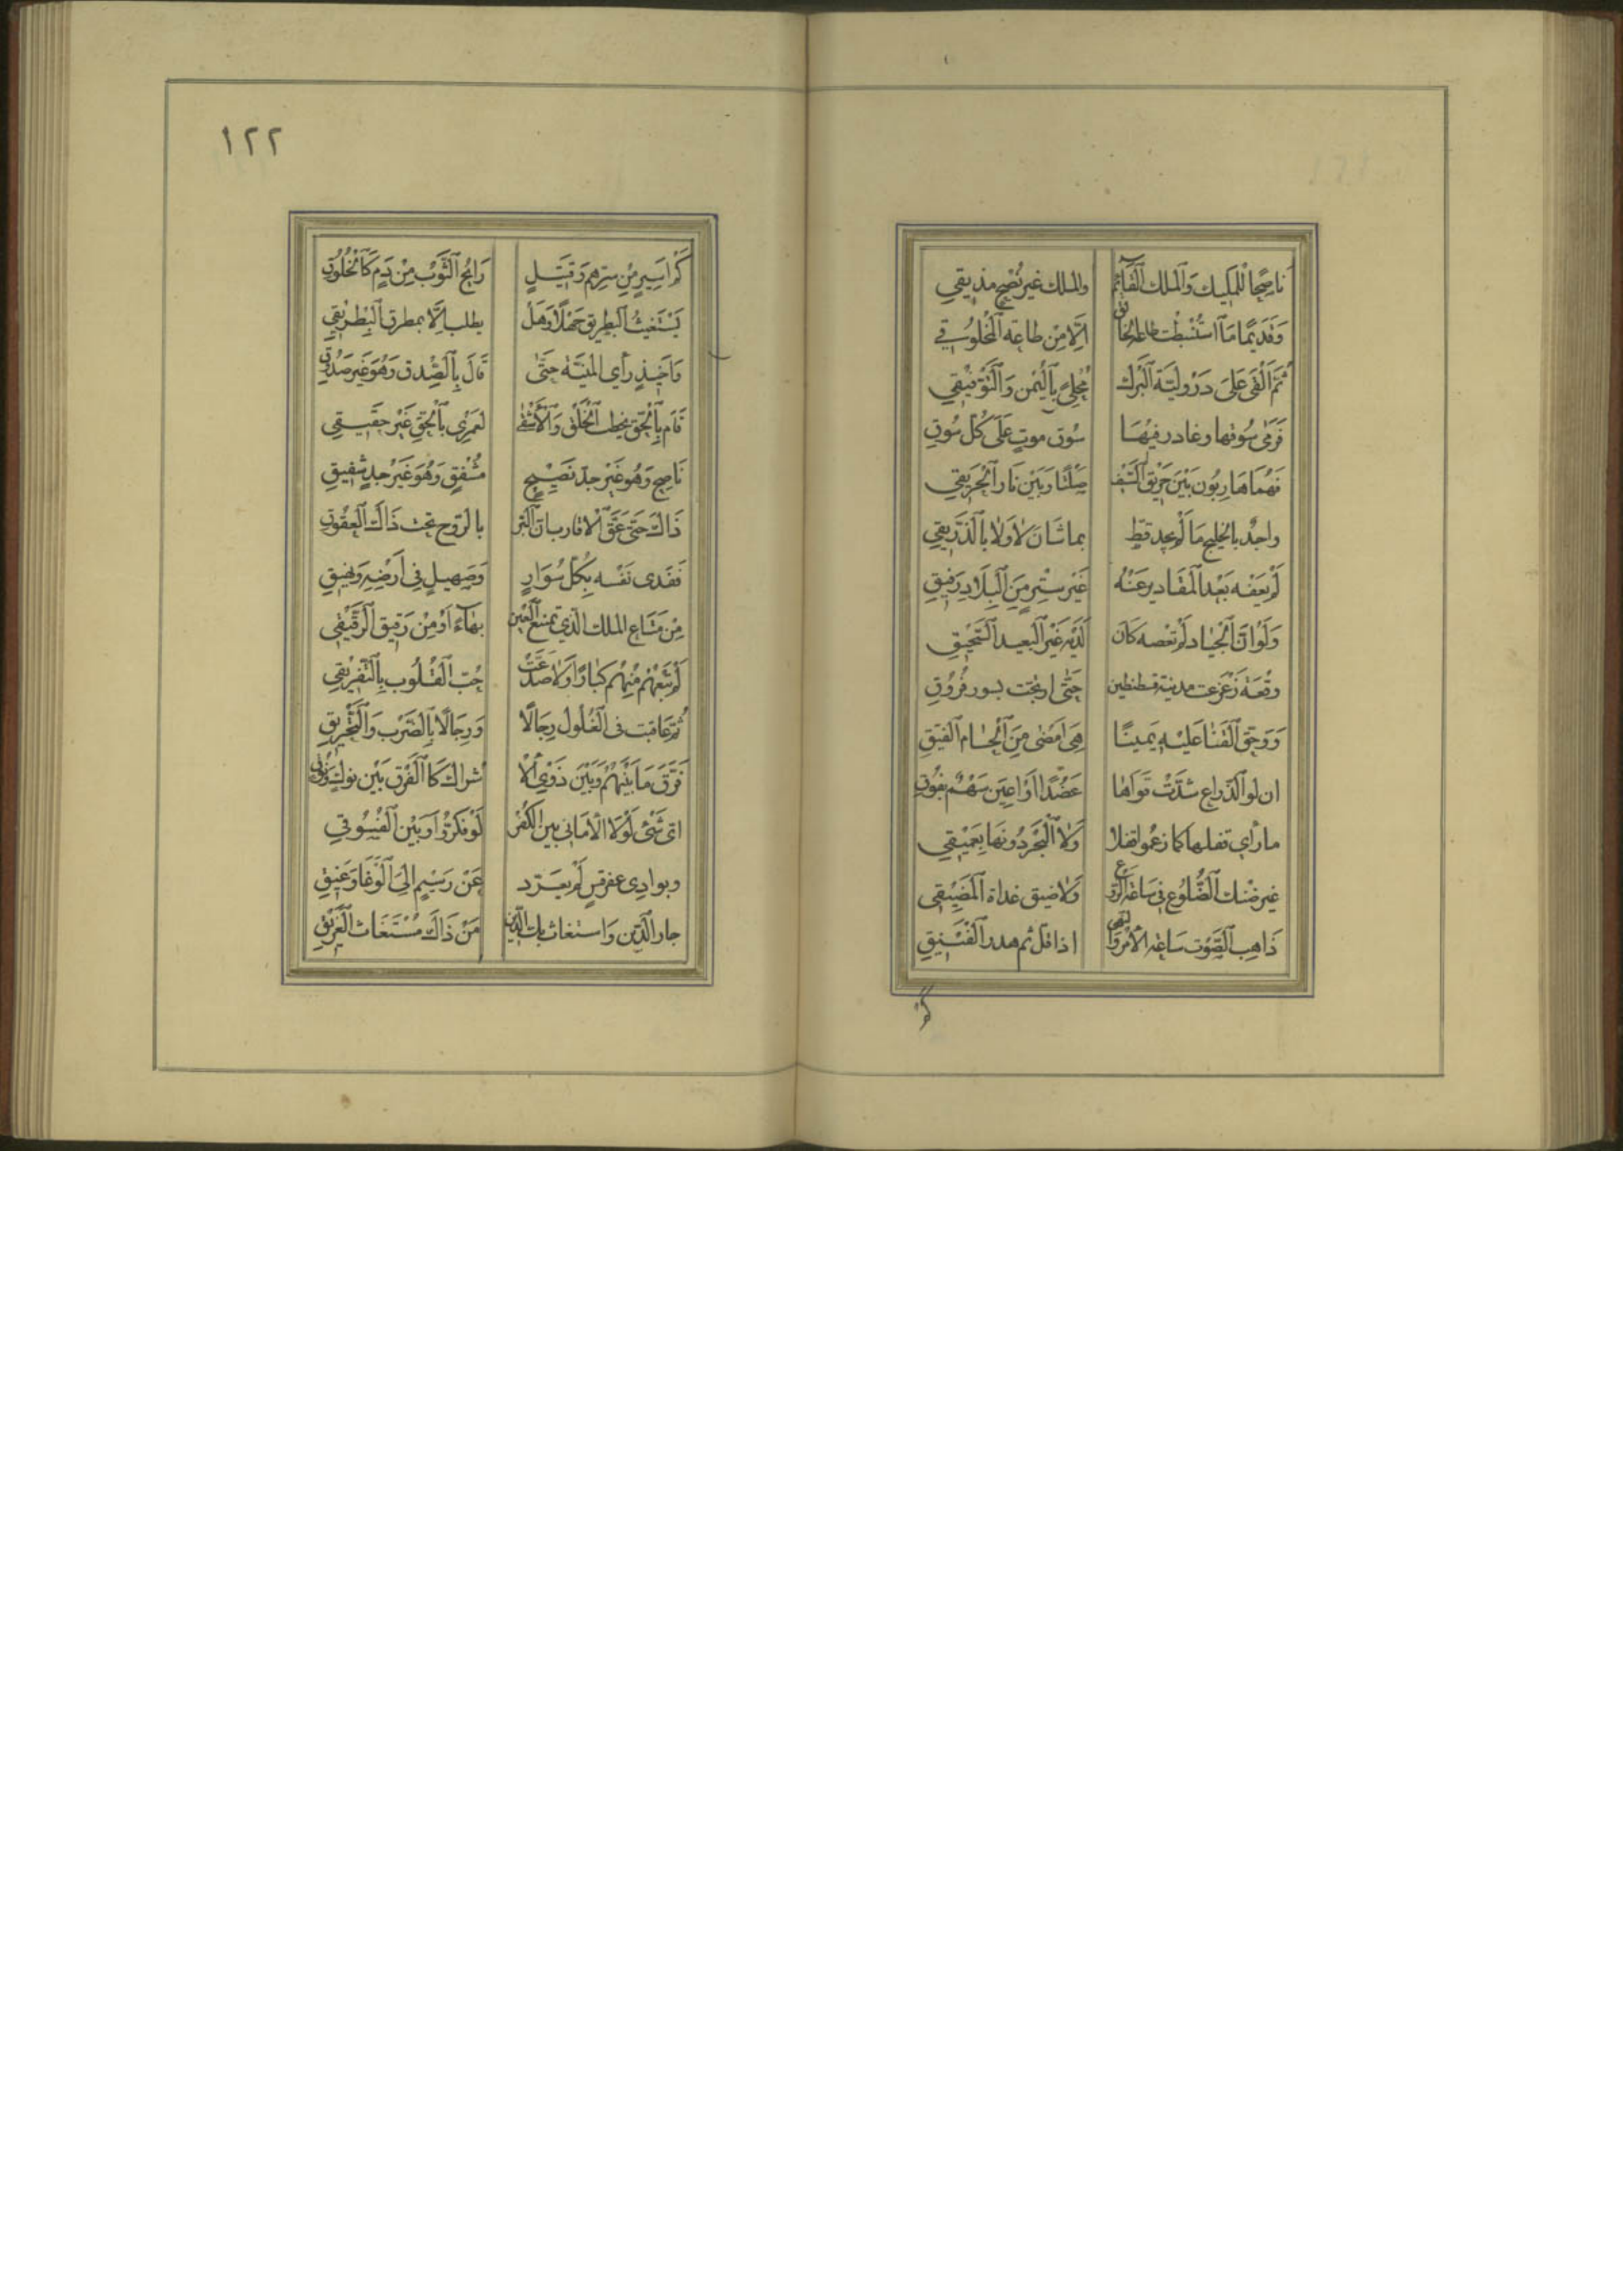 ١٢٢
ناصحًا للمليك والملك القائم والملك غير نصح مذيقي
وقديما ما استنبطت طاعة الخالق الا من طاعة المخلوقي
ثم القى على درولية البرك محلى باليمن والتوفيقي
فرمى سوقها وغادر فيها سوق موت على كل سوق
فهما هاربون بين حريق السيف صلتا وبين نار الحريقي
واجدٌ بالخليج ما لم يجد قط بماشان لا ولا بالذريقي
لم يعفه بعد المقادير عنه غير ستر من البلاد رفيق
ولو ان الجياد لم تعصه كان لديه غير البعيد السحيق
وقعة زعزعت مدينة قسطنطين حتى ارتجت بسور فروق
ووحق القنا عليه يمينًا هي امضى من الحسام الفيق
ان لو الذراع شدت قواها عضدًا او اعين سهم بفوق
ما رأي تفلها كما زعموا تفلا ولا البحر دونها بعميقي
غير ضنك الضلوع في ساعة الروع ولا ضيق غداة المضيقي
ذاهب الصوت ساعة الامر والنهي اذا قل ثم هدر الفنيق
كم اسير من سرهم وقتيل رايح الثوب من دم كالخلوق
يستغيث البطريق جهلا وهل يطلب الا بمطرق البطريقي
واخيذ رأي المنية حتى قال بالصدق وهو غير صدوق
قام بالحق يخطب الخلق والاشقى لعمري بالحق غير حقيقي
ناصح وهو غير جد نصيح مشفق وهو غير جد شفيق
ذاك حتى عق الاقارب ان البر بالروح تحت ذاك العقوق
ففدى نفسه بكل سوار وصهيل في ارضه ونهيق
من متاع الملك الذي تمتع العين بهاء او من رقيق الرقيقي
لم تبعهم منهم كبارًا ولا صدعت حب القلوب بالتفريقي
ثم عاقبت في الغلول رجالًا ورجالًا بالضرب والتحريق
فرق ما بينهم وبين ذوي الا شراك كا الفرق بين نوك وموق
اي شيئ لولا الاماني بين الكفر لو فكروا وبين الفسوقي
وبوادي عقرقس لم يعرد عن رسيم الى الوغا وعنيق
جار الدين واستغاث بك الدين من ذاك مستغاث الغريق